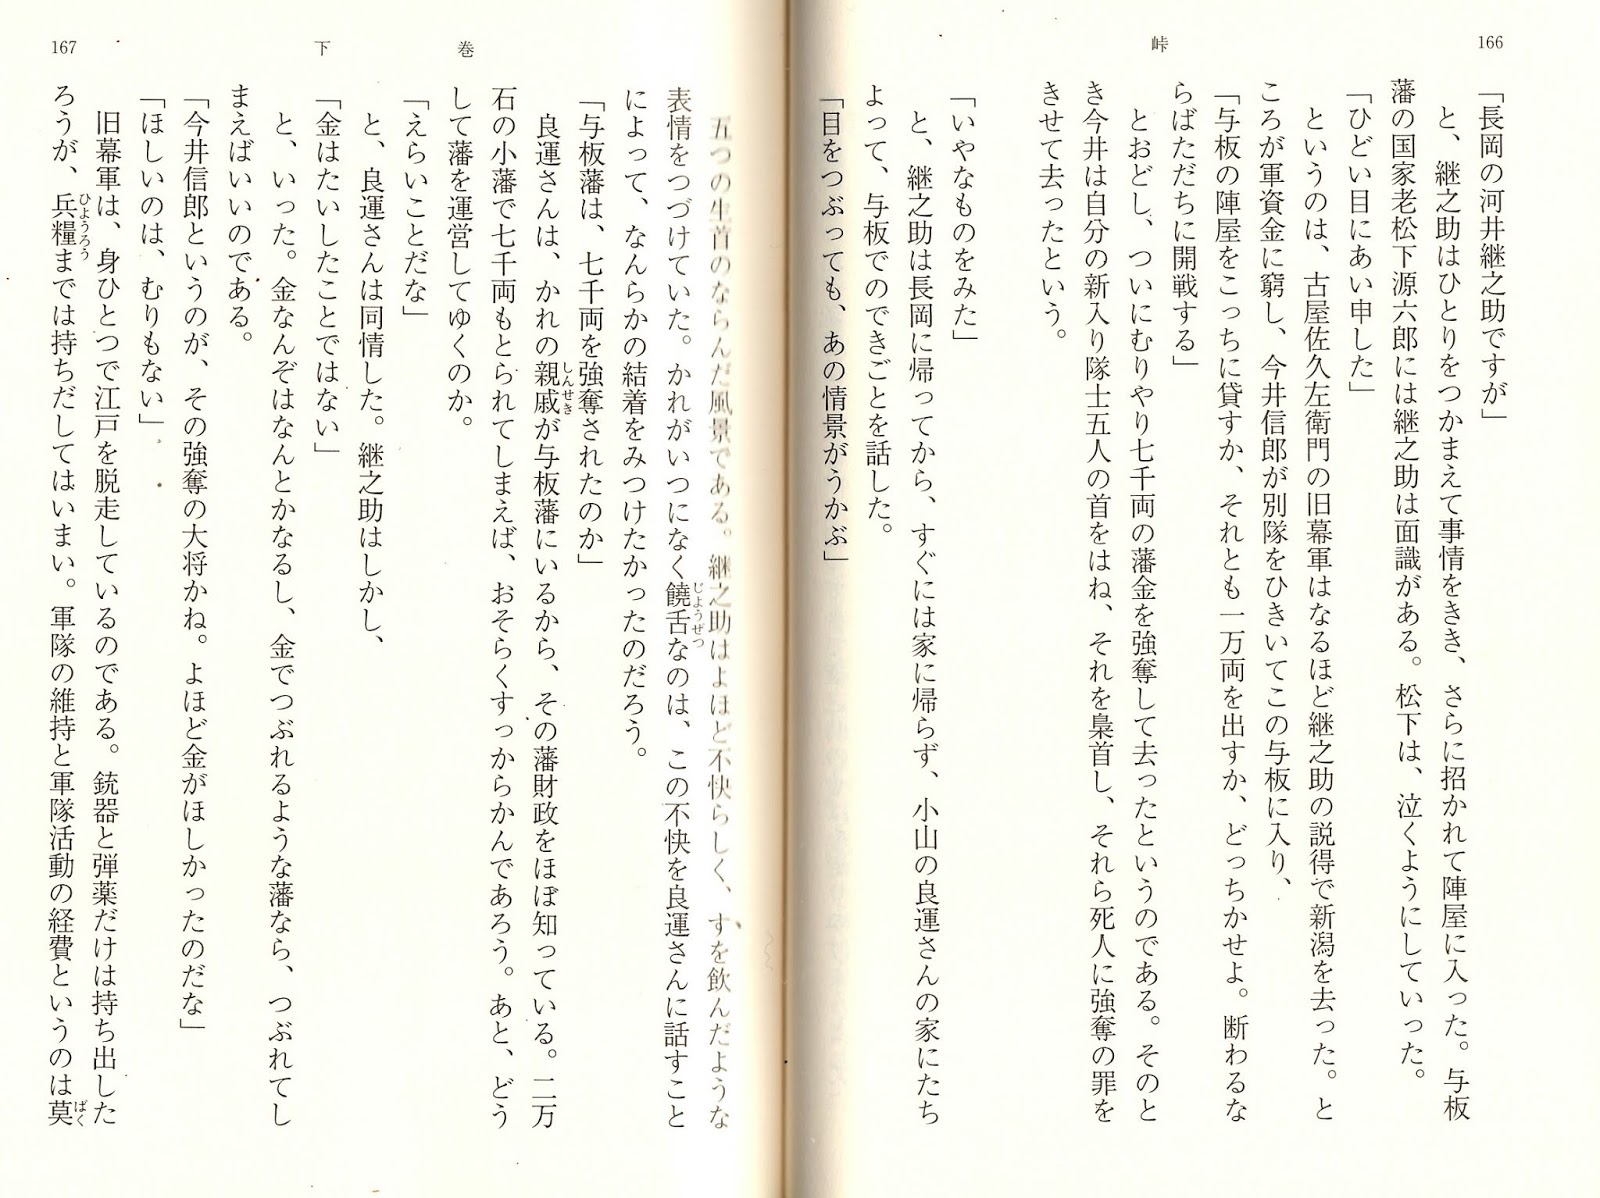 166
峠
「長岡の河井継之助ですが」
と、継之助はひとりをつかまえて事情をきき、さらに招かれて陣屋に入った。与板
藩の国家老松下源六郎には継之助は面識がある。松下は、泣くようにしていった。
「ひどい目にあい申した」
というのは、古屋佐久左衛門の旧幕軍はなるほど継之助の説得で新潟を去った。と
ころが軍資金に窮し、今井信郎が別隊をひきいてこの与板に入り、
「与板の陣屋をこっちに貸すか、それとも一万両を出すか、どっちかせよ。断わるな
らばただちに開戦する」
とおどし、ついにむりやり七千両の藩金を強奪して去ったというのである。そのと
き今井は自分の新入り隊士五人の首をはね、それを梟首し、それら死人に強奪の罪を
きせて去ったという。
「いやなものをみた」
と、継之助は長岡に帰ってから、すぐには家に帰らず、小山の良運さんの家にたち
よって、与板でのできごとを話した。
「目をつぶっても、あの情景がうかぶ」
167
下巻
五つの生首のならんだ風景である。継之助はよほど不快らしく、すを飲んだような
表情をつづけていた。かれがいつになく饒舌なのは、この不快を良運さんに話すこと
じょうぜつ
によって、なんらかの結着をみつけたかったのだろう。
「与板藩は、七千両を強奪されたのか」
良運さんは、かれの親戚が与板藩にいるから、その藩財政をほぼ知っている。二万
しんせき
石の小藩で七千両もとられてしまえば、おそらくすっからかんであろう。あと、どう
して藩を運営してゆくのか。
「えらいことだな」
と、良運さんは同情した。継之助はしかし、
「金はたいしたことではない」
と、いった。金なんぞはなんとかなるし、金でつぶれるような藩なら、つぶれてし
まえばいいのである。
「今井信郎というのが、その強奪の大将かね。よほど金がほしかったのだな」
「ほしいのは、むりもない」
旧幕軍は、身ひとつで江戸を脱走しているのである。銃器と弾薬だけは持ち出した
ろうが、兵糧までは持ちだしてはいまい。軍隊の維持と軍隊活動の経費というのは莫
ひょうろう
ばく